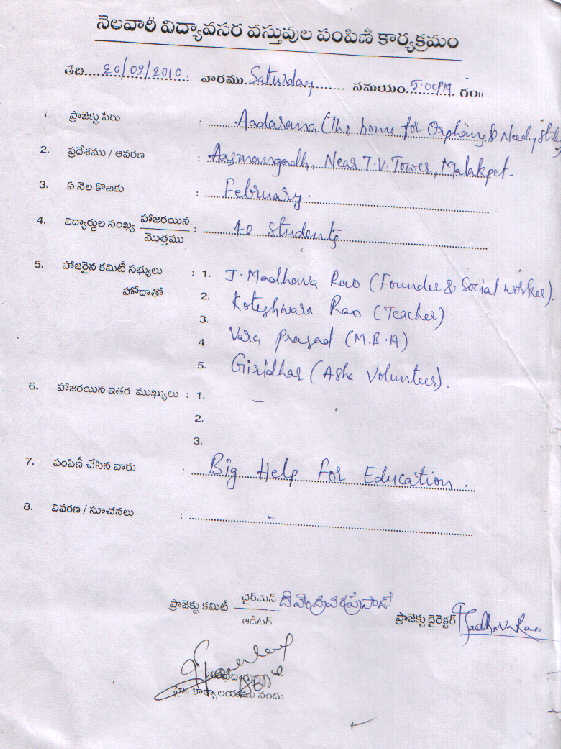 నెలవారీ విద్యావసర వస్తువుల పంపిణీ కార్యక్రమం
తేది....20/02/2010... వారము Saturday...... సమయం. 5:00PM గం॥
1. ప్రాజెక్టు పేరు : Aadarana (the home for Orphans & Needy
2. ప్రదేశము / ఆవరణ : Near T.V. Tower, Malakpet.
3. ఏ నెల కొరకు : February.
4. విద్యార్థుల సంఖ్య హాజరయిన : 40 students
మొత్తము
5. హాజరైన కమిటీ సభ్యులు : 1. J. Madhava Rao (Founder & Social worker).
హోదాలతో 2. Koteshwara Rao (Teacher)
3.
4 Vara Prasad (M.B.A)
5. Giridhar (Asha Volunteer).
6. హాజరయిన ఇతర ముఖ్యులు : 1. –
2.
3.
7. పంపిణీ చేసిన వారు : Big Help For Education.
8. వివరణ / సూచనలు : -
ప్రాజెక్టు కమిటీ ఛైర్మన్ ప్రాజెక్టు డైరెక్టర్ Madhava Rao
ఆడిటర్